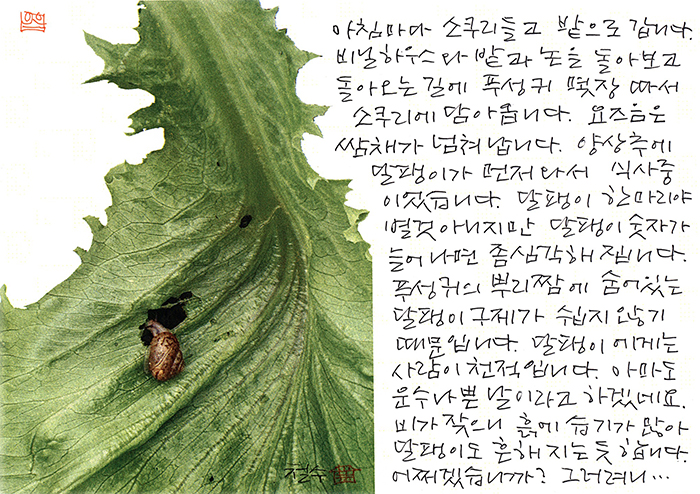 아침마다 소쿠리들고 밭으로 갑니다.
비닐하우스와 밭과 논을 돌아보고
돌아오는길에 푸성귀 몇장 따서
소쿠리에 담아옵니다. 요즈음은
쌈채가 넘쳐납니다. 양상추에
달팽이가 먼저와서 식사중
이었습니다. 달팽이 한마리야
별것아니지만 달팽이숫자가
늘어나면 좀심각해집니다.
푸성귀의 뿌리짬에 숨어있는
달팽이구제가 쉽지않기
때문입니다. 달팽이에게는
사람이천적입니다. 아마도
운수나쁜날이라고 하겠네요.
비가 잦으니 흙에 습기가 많아
달팽이도 흔해지는듯합니다.
어쩌겠습니까? 그러려니…
철수